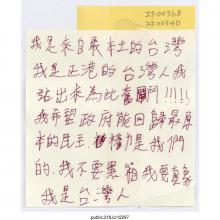 IF00368
IF00340
我是來自最本土的台灣
我是正港的台灣人我
站出來為此奮鬥!!!!!
我希望政府能回歸最原
本的民主 權力是我們
的,我不要黑箱我要真象
我是台灣人
public.318.io/12297